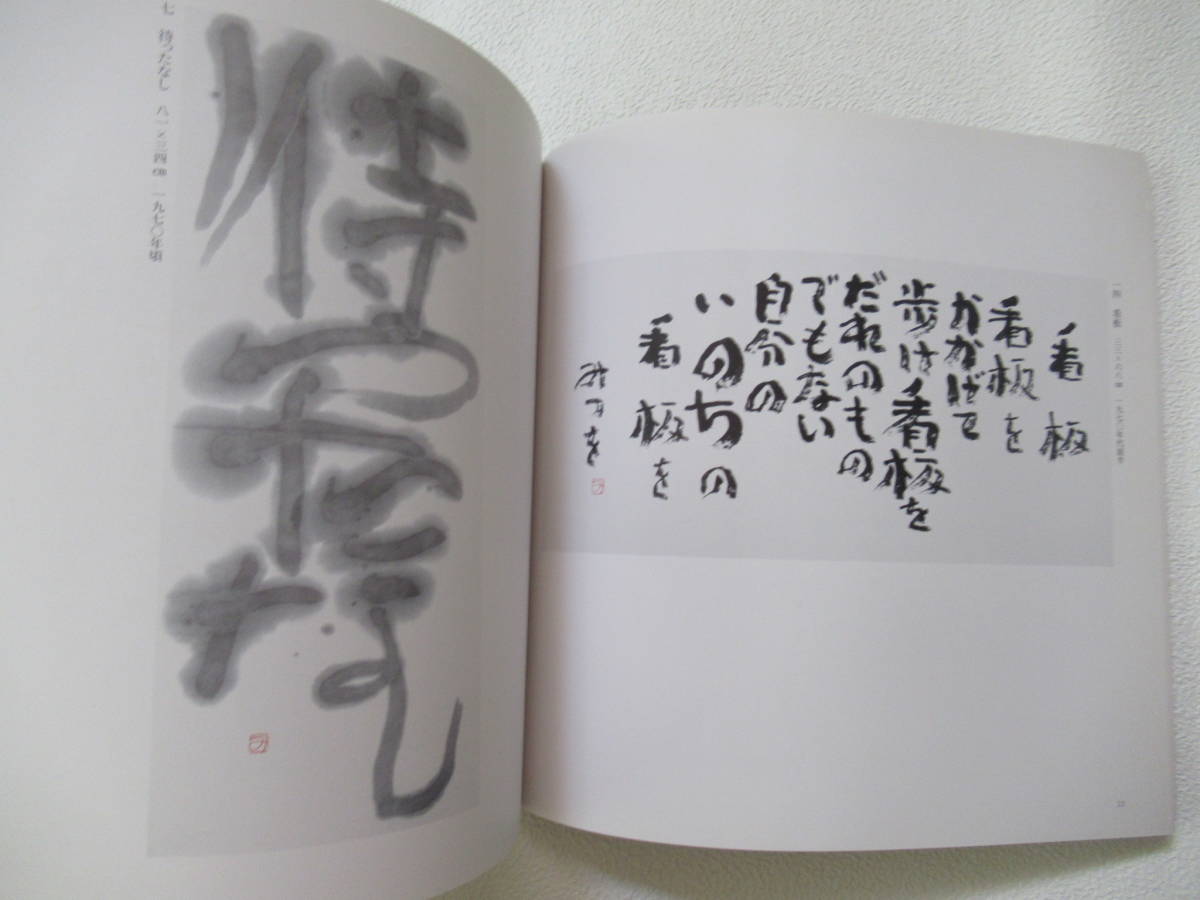 七　待ったなし　八一×三四㎝　一九七〇年頃
待った
なし
看板
看板を
かかげて
歩け看板を
だれのもの
でもない
自分の
いのちの
看板を